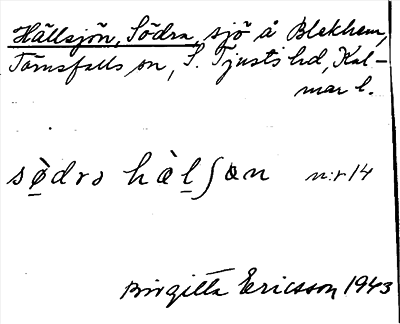 Hällsjön, Södra, sjö å Blekhem,
Törnsfalls sn, S. Tjusts hd, Kal-
mar l.
södra hälſɷn n:r 14
Birgitta Ericsson 1943